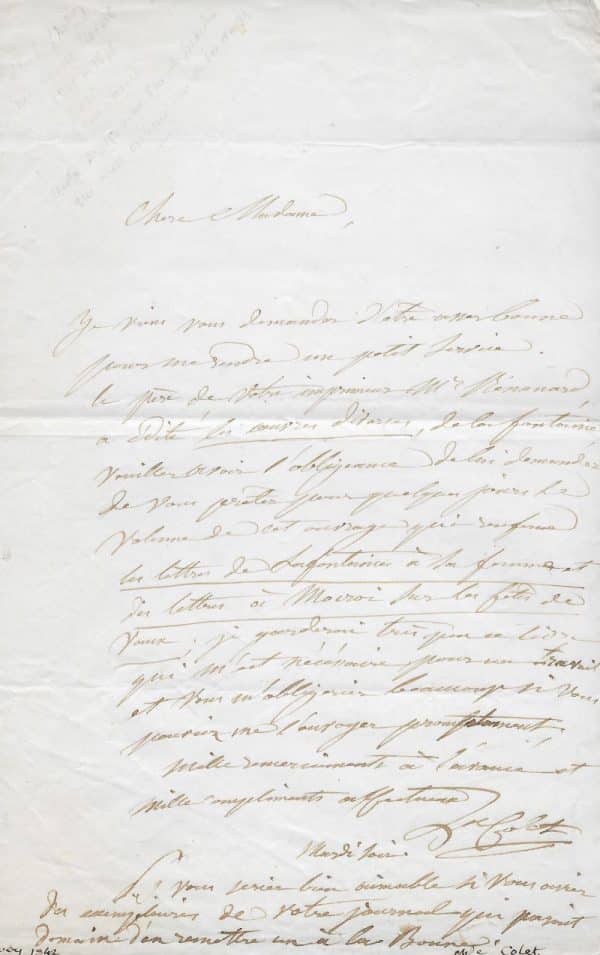 Chere Madame,
Je viens vous demander d'etre assez bonne
pour me rendre un petit service.
le père de votre imprimeur Mr. Renouard
a édité les œuvres diverses, de la fontaine
veuillez avoir l'obligeance de lui demander
de vous prêter pour quelques jours le
volume de cet ouvrage qui renferme
les lettres de Lafontaine à sa femme et
des lettres à Mocroi sur les fêtes de
Vaux. je garderai très peu ce livre
qui m'est nécessaire pour un travail
et vous m'obligeriez beaucoup si vous
pouviez me l'envoyer promptement.
mille remerciments à l'avance et
mille compliments affectueux
Colet
Mardi soir.
vous seriez bien aimable si vous aviez
des exemplaires de votre journal qui parait
demain d'en remettre un à la Bonne.
1842
Colet.